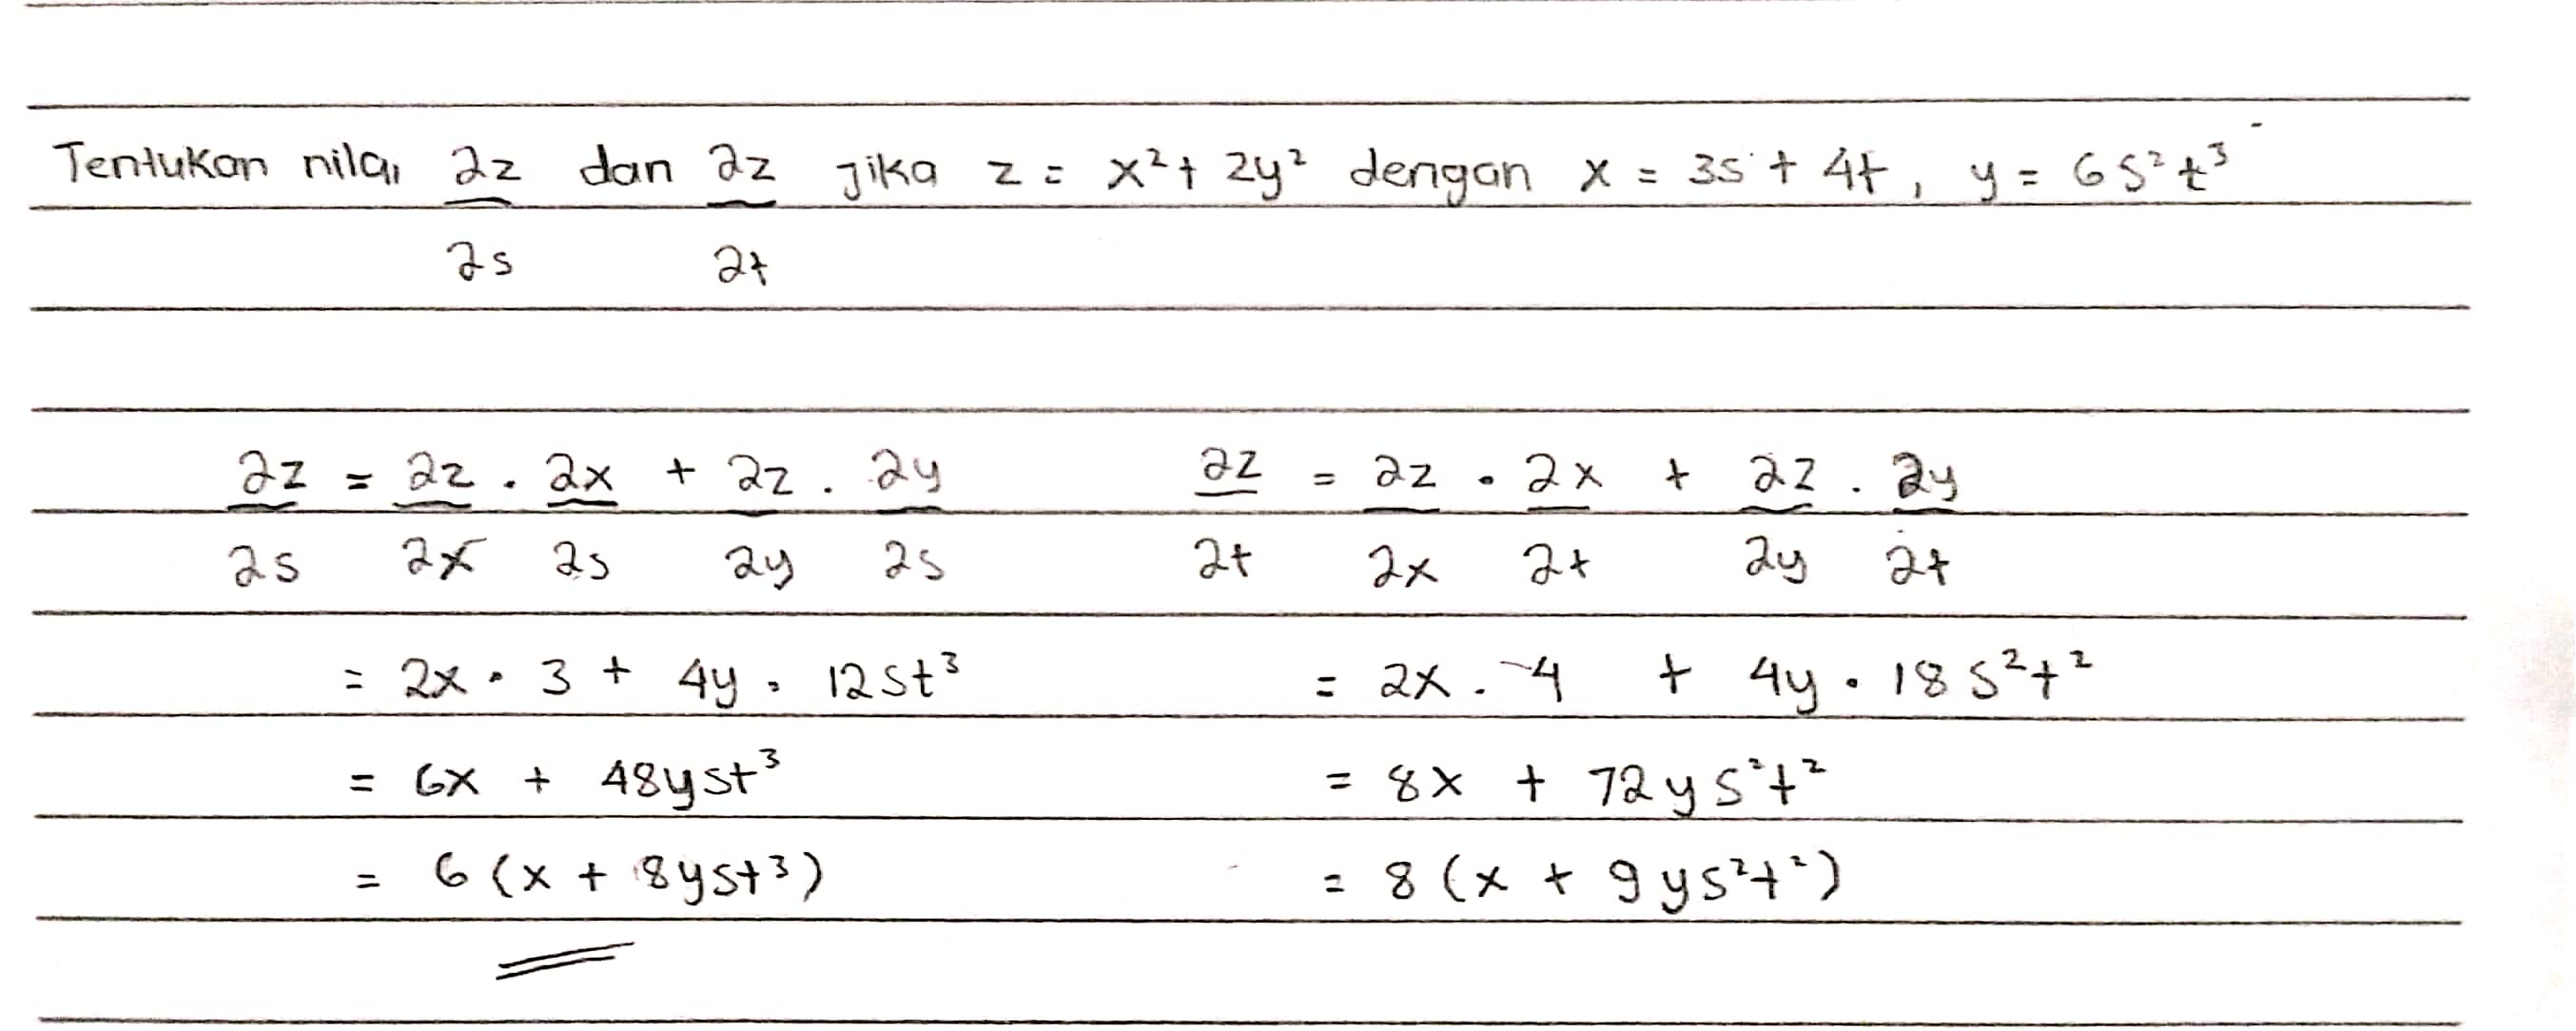 Tentukan nilai ∂z dan ∂z jika z = x² + 2y² dengan x = 3s + 4t, y = 6s²t³
∂s ∂t
∂z = ∂z . ∂x + ∂z . ∂y
∂s ∂x ∂s ∂y ∂s
= 2x . 3 + 4y . 12st³
= 6x + 48yst³
= 6 (x + 8yst³)
∂z = ∂z . ∂x + ∂z . ∂y
∂t ∂x ∂t ∂y ∂t
= 2x . 4 + 4y . 18s²t²
= 8x + 72ys²t²
= 8 (x + 9ys²t²)